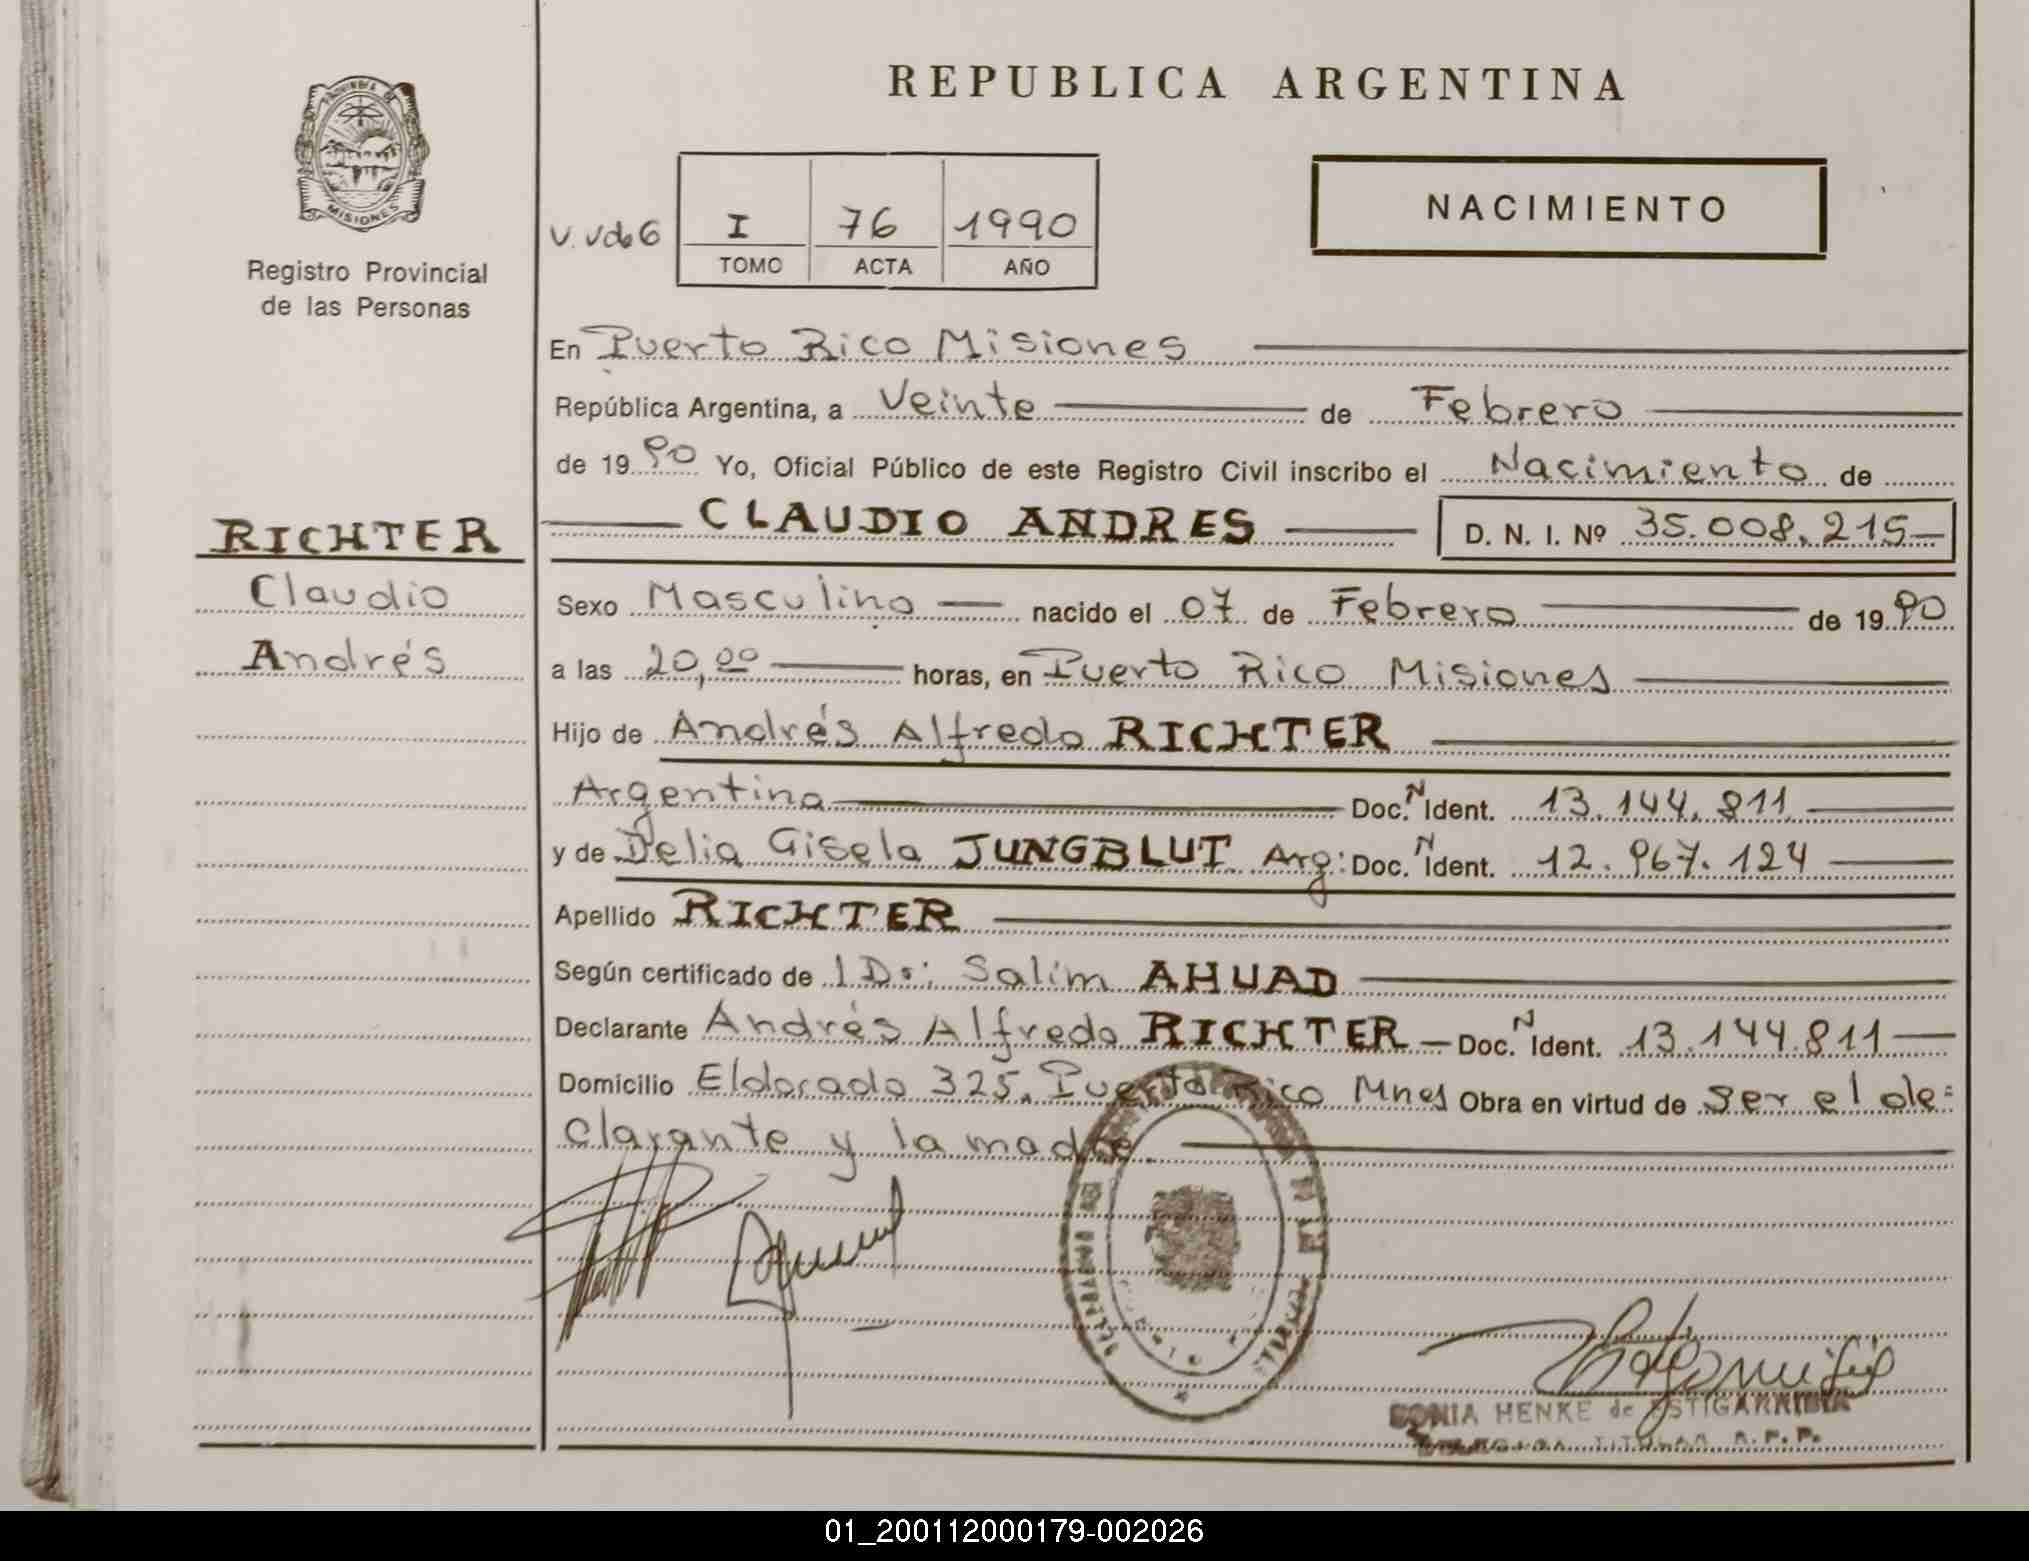 REPUBLICA ARGENTINA
PROVINCIA DE
MISIONES
Registro Provincial
de las Personas
I 76 1990
TOMO ACTA AÑO
NACIMIENTO
En Puerto Rico Misiones
República Argentina, a Veinte de Febrero
de 1990 Yo, Oficial Público de este Registro Civil inscribo el Nacimiento de
RICHTER
Claudio
Andrés
CLAUDIO ANDRES D. N. I. Nº 35.008.215
Sexo Masculino nacido el 07 de Febrero de 1990
a las 20,00 horas, en Puerto Rico Misiones
Hijo de Andrés Alfredo RICHTER
Argentina Doc. N Ident. 13.144.811
y de Delia Gisela JUNGBLUT Arg: Doc. N Ident. 12.967.124
Apellido RICHTER
Según certificado de l Dr: Salim AHUAD
Declarante Andrés Alfredo RICHTER Doc. N Ident. 13.144.811
Domicilio Eldorado 325. Puerto Rico Mnes Obra en virtud de Ser el de=
clarante y la madre.
SONIA HENKE de ESTIGARRIBIA
TITULAR R.P.P.
01_200112000179-002026